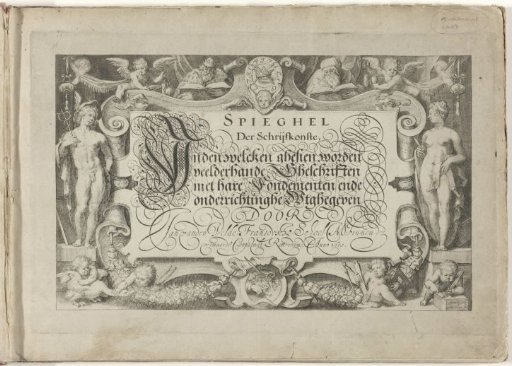 SPIEGHEL
Der Schrijfkonste,
Inden welcken ghesien worden
veelderhande Gheschriften
met hare Fondementen ende
onderrichtinghe Wtghegeven
DOOR
Jan vanden Velde Fransoysche School Mr binnen
Rotterdam Anno 1605